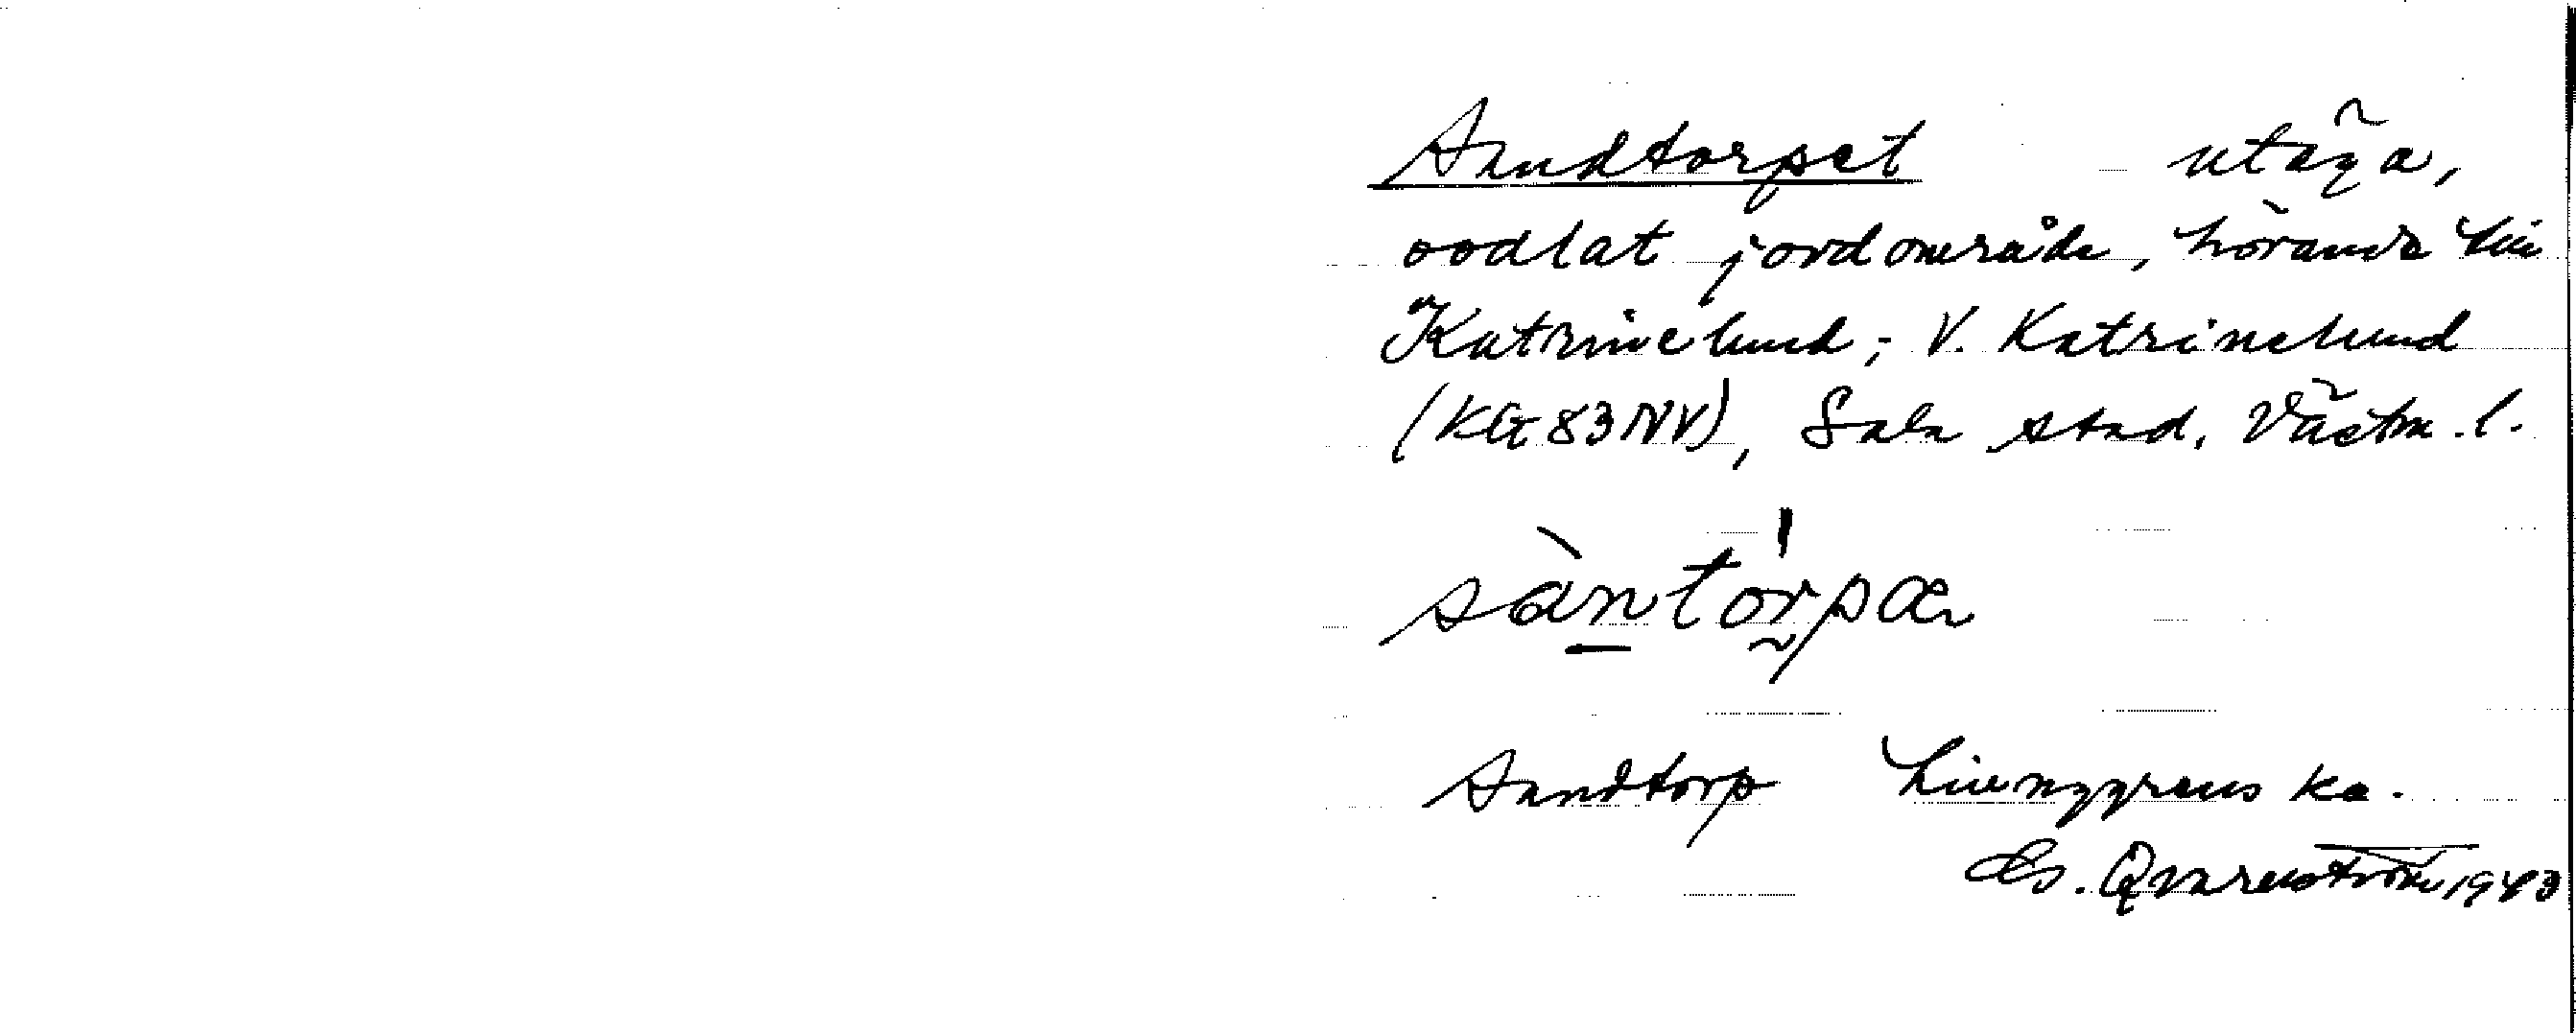 Sandtorpet utäga,
oodlat jordområde, hörande till
Katrinelund; V. Katrinelund
(KG 83 NV), Sala stad, Västm. l.
sàntórpæ
Sandtorp Ljunggrens ka.
Qvarnström 1943